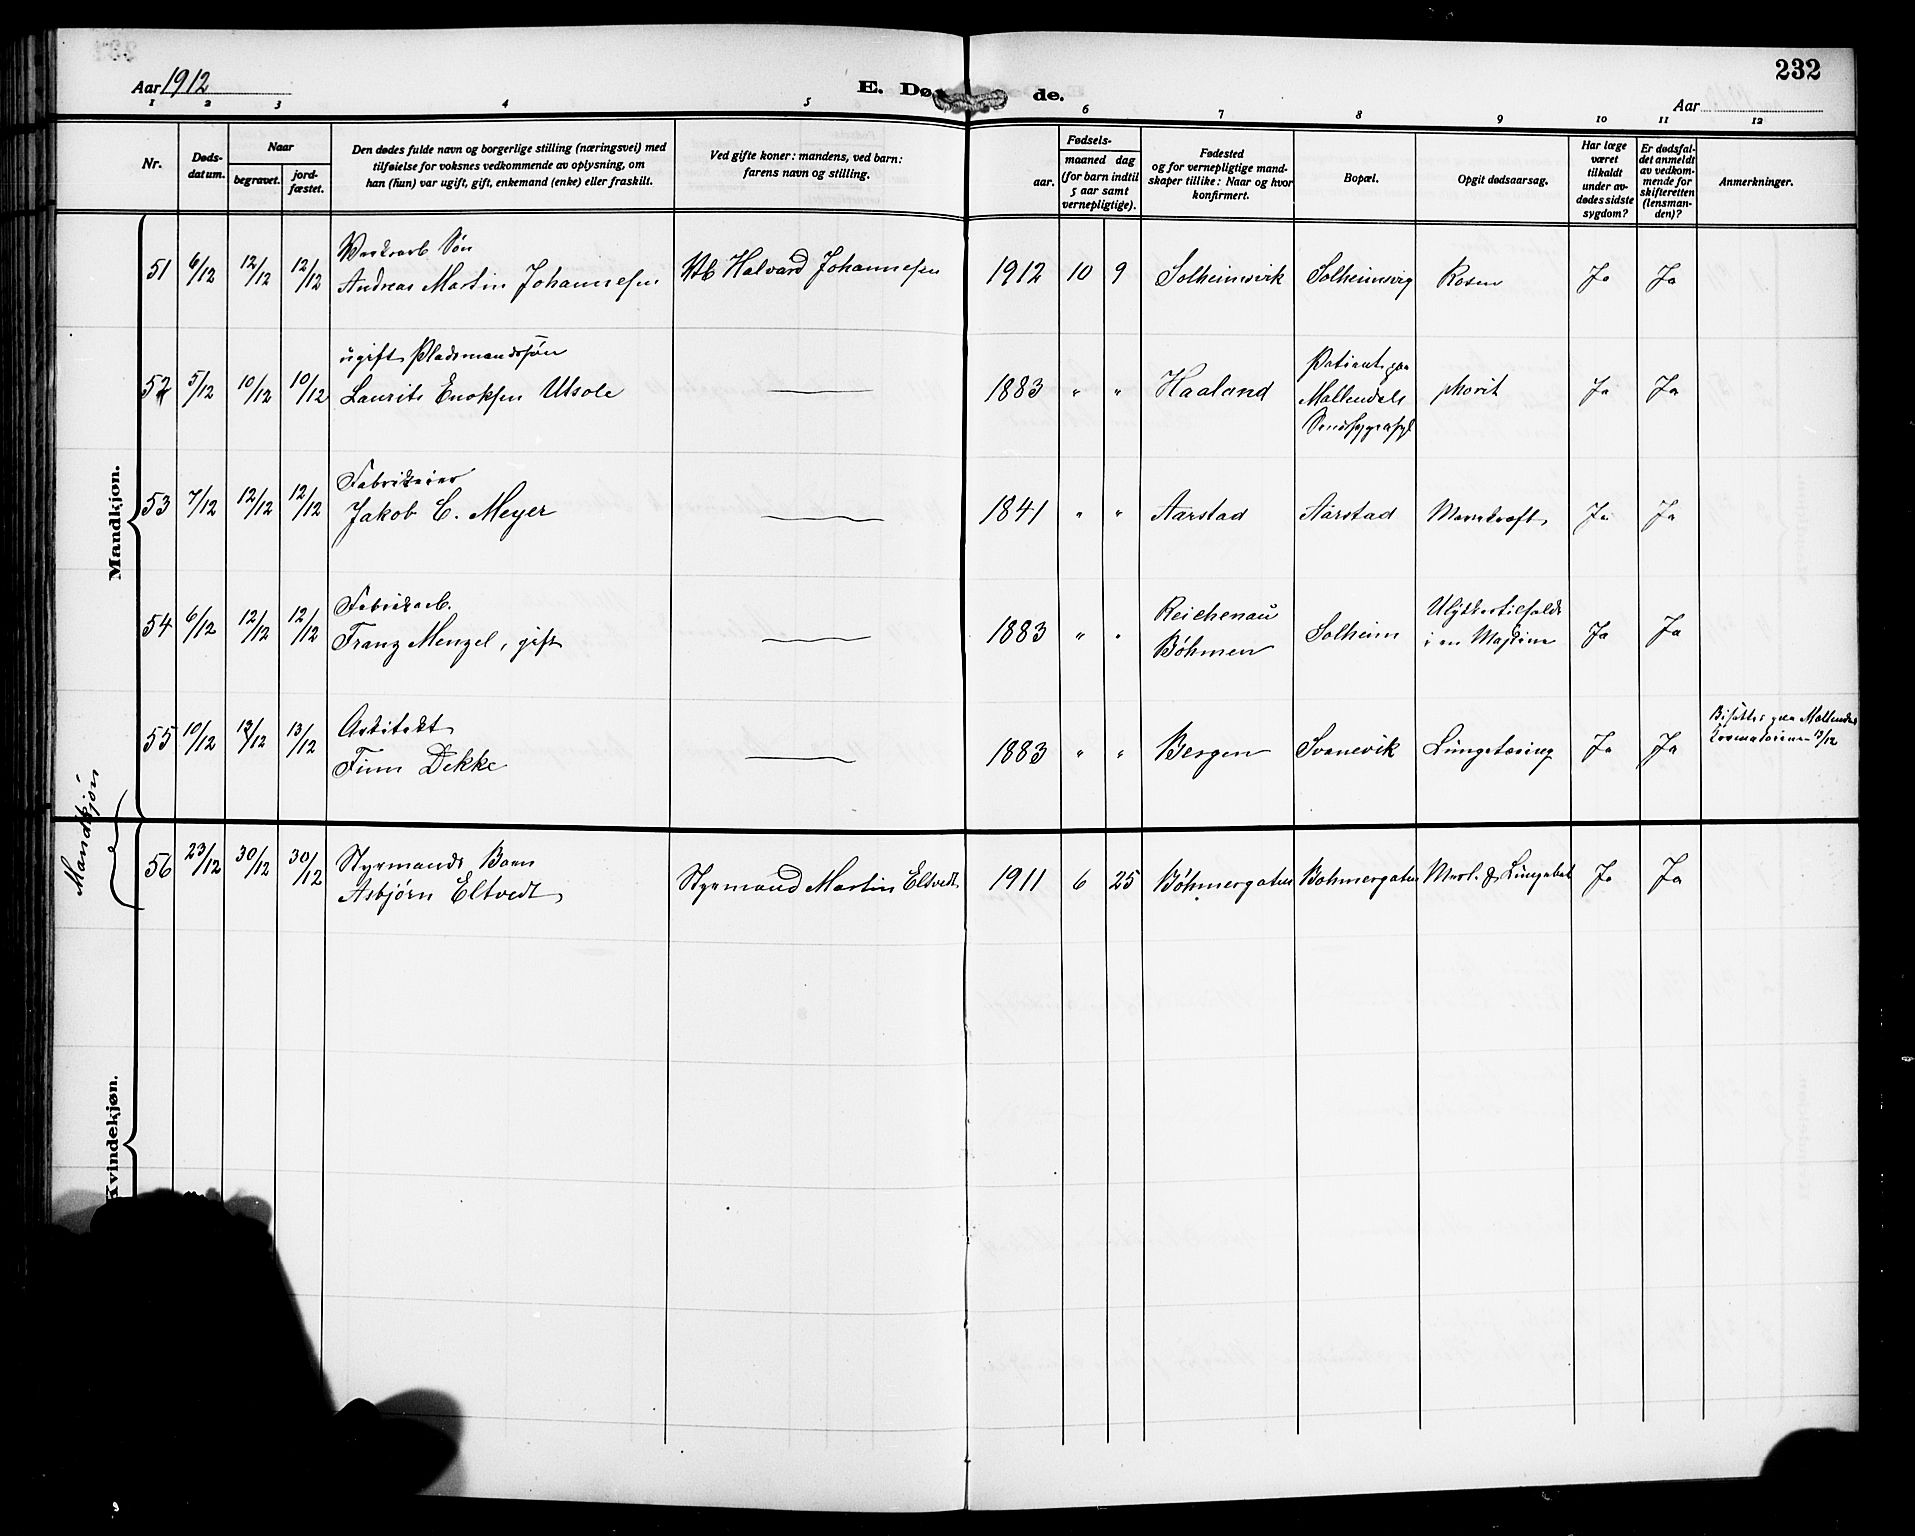 232
Aar 1912
E. Dø de.
Aar
1 2 3 4 5 6 7 8 9 10 11 12
Nr.
Døds-
datum.
Naar
begravet.
jord-
fæstet.
Den dødes fulde navn og borgerlige stilling (næringsvei) med
tilføielse for voksnes vedkommende av oplysning, om
han (hun) var ugift, gift, enkemand (enke) eller fraskilt.
Ved gifte koner: mandens, ved barn:
farens navn og stilling.
Fødsels-
aar.
maaned dag
(for barn indtil
5 aar samt
vernepligtige).
Fødested
og for vernepligtige mand-
skaper tillike: Naar og hvor
konfirmert.
Bopæl.
Opgit dødsaarsag.
Har læge
været
tilkaldt
under av-
dødes sidste
sygdom?
Er dødsfal-
det anmeldt
av vedkom-
mende for
skifteretten
(lensman-
den)?
Anmerkninger.
Mandkjøn.
Søn
51 6/12 12/12 12/12 Andreas Martin Johannesen Halvard Johannesen 1912 10 9 Solheimsvik Solheimsvig Rosen Ja Ja
ugift Pladsmandssøn
52 5/12 10/12 10/12 Laurits Enoksen Utsole 1883 " " Haaland Patient paa
Møllendals
Ja Ja
Fabrikeier
53 7/12 12/12 12/12 Jakob C. Meyer 1841 " " Aarstad Aarstad Ja Ja
Fabrikarb.
54 6/12 12/12 12/12 Franz Menzel, gift 1883 " " Reichenau
Böhmen Solheim Ulykkestilfælde
i en Maskine Ja Ja
Arkitekt
55 10/12 13/12 13/12 Finn Dekke 1883 " " Bergen Svanevik Ja Ja
Bisættes paa Møllendal
Krematorium 13/12
Mandkjøn
Styrmands Barn
56 23/12 30/12 30/12 Asbjørn Eltvedt Styrmand Martin Eltvedt 1911 6 25 Bøhmergaten Bohmergaten Ja Ja
Kvindekjøn.